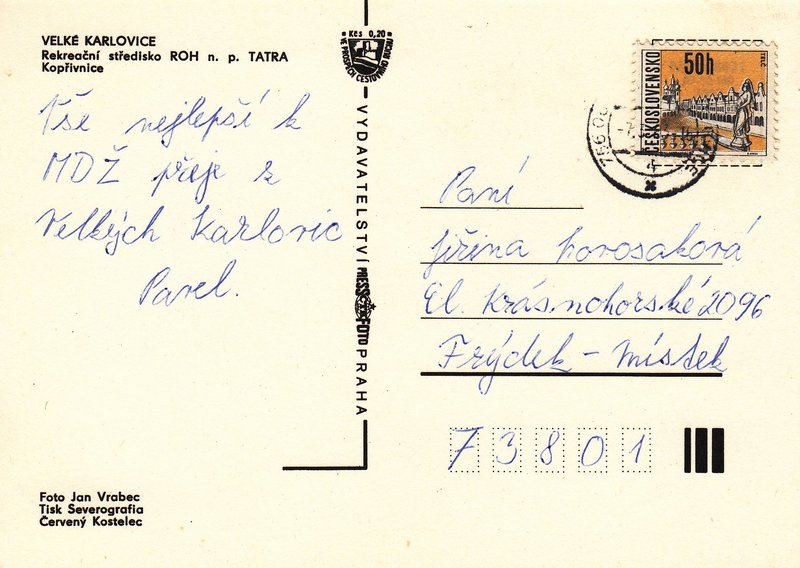 VELKÉ KARLOVICE
Rekreační středisko ROH n. p. TATRA
Kopřivnice
Vše nejlepší k
MDŽ přeje z
Velkých Karlovic
Pavel.
Foto Jan Vrabec
Tisk Severografia
Červený Kostelec
Kčs 0,20
VE PROSPĚCH CESTOVNÍHO RUCHU
VYDAVATELSTVÍ PRESSFOTO PRAHA
ČESKOSLOVENSKO
50h
TELČ
756 06
Paní
Jiřina
El. Krásnohorské 2096
Frýdek - Místek
73801